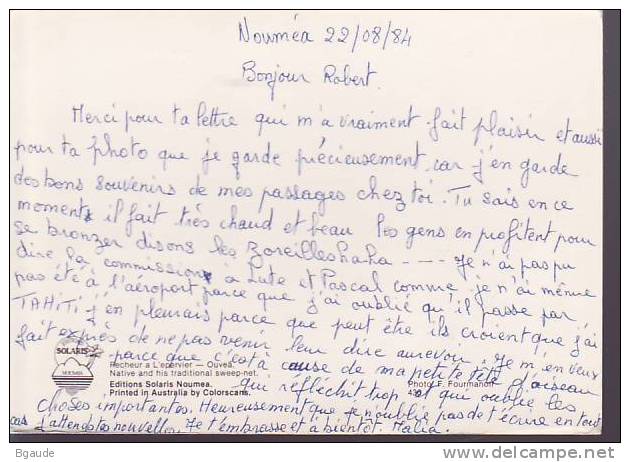 Nouméa 22/08/84
Bonjour Robert.
Merci pour ta lettre qui m'a vraiment fait plaisir et aussi
pour ta photo que je garde précieusement car j'en garde
des bons souvenirs de mes passages chez toi. Tu sais en ce
moment il fait très chaud et beau les gens en profitent pour
se bronzer disons les zoreilles haha - - - - Je n'ai pas pu
dire la commission à Lute et Pascal comme je n'ai même
pas été à l'aéroport parce que j'ai oublié qu'il passe par
TAHITI j'en pleurais parce que peut être ils croient que j'ai
fait exprès de ne pas venir leur dire aurevoir. Je m'en veux
parce que c'est à cause de ma petite tête d'oiseau
qui réfléchit trop et qui oublie les
choses importantes. Heureusement que je n'oublie pas de t'écrire en tout
cas j'attends tes nouvelles. Je t'embrasse et à bientôt. Malia.
SOLARIS
NOUMEA
Pecheur a L'epervier — Ouvea.
Native and his traditional sweep-net.
Editions Solaris Noumea.
Printed in Australia by Colorscans.
Photo F. Fourmanoir
Bgaude
delcampe.net